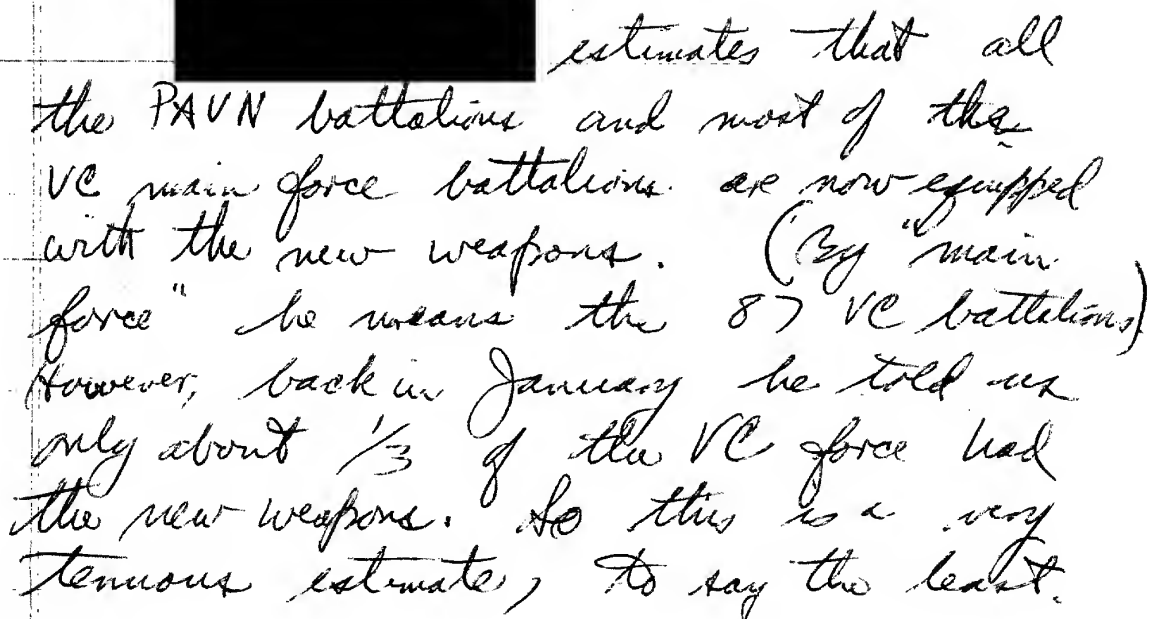 estimates that all
the PAVN battalions and most of the
VC main force battalions are now equipped
with the new weapons. (By "main
force" he means the 87 VC battalions)
However, back in January he told us
only about 1/3 of the VC force had
the new weapons. So this is a very
tenuous estimate, to say the least.